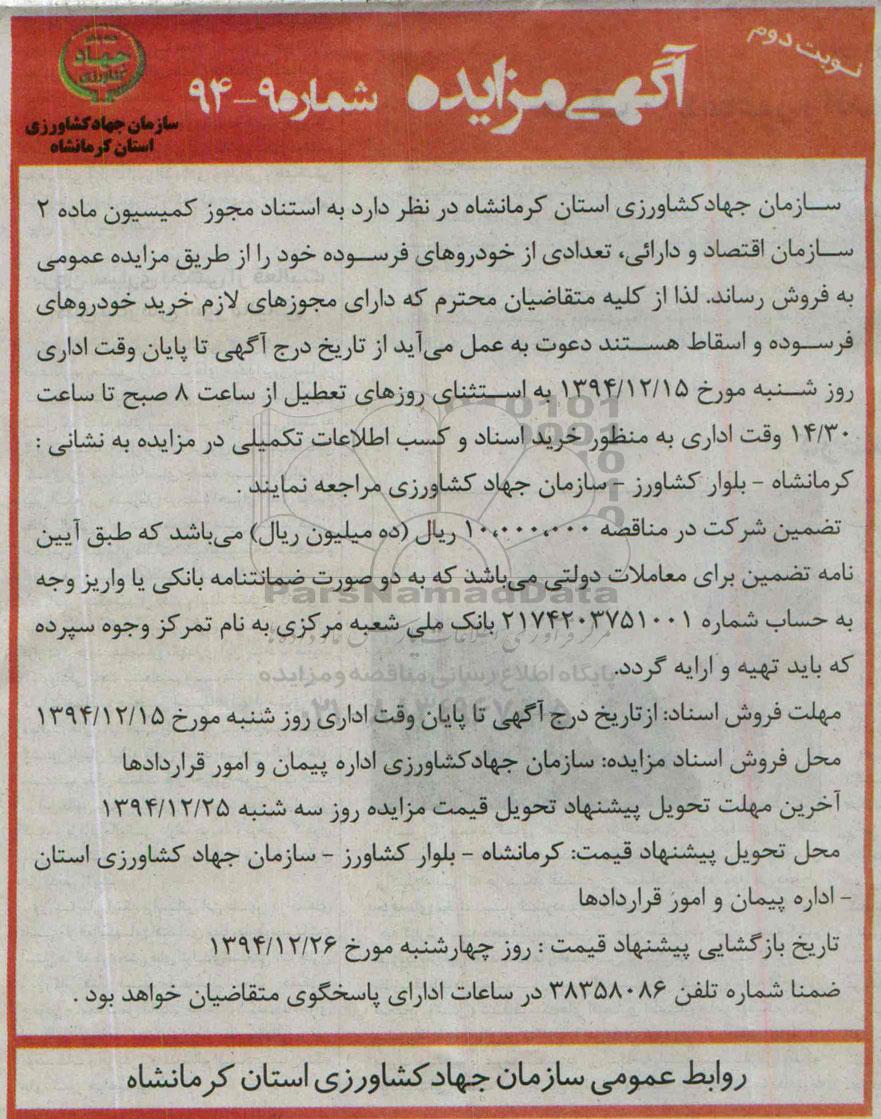 نوبت دوم
آگهی مزایده شماره ۹-۹۴
جهاد
کشاورزی
سازمان جهاد کشاورزی
استان کرمانشاه
سازمان جهادکشاورزی استان کرمانشاه در نظر دارد به استناد مجوز کمیسیون ماده ۲
سازمان اقتصاد و دارائی، تعدادی از خودروهای فرسوده خود را از طریق مزایده عمومی
به فروش رساند. لذا از کلیه متقاضیان محترم که دارای مجوزهای لازم خرید خودروهای
فرسوده و اسقاط هستند دعوت به عمل می‌آید از تاریخ درج آگهی تا پایان وقت اداری
روز شنبه مورخ ۱۳۹۴/۱۲/۱۵ به استثنای روزهای تعطیل از ساعت ۸ صبح تا ساعت
۱۴/۳۰ وقت اداری به منظور خرید اسناد و کسب اطلاعات تکمیلی در مزایده به نشانی :
کرمانشاه - بلوار کشاورز - سازمان جهاد کشاورزی مراجعه نمایند .
تضمین شرکت در مناقصه ۱۰,۰۰۰,۰۰۰ ریال (ده میلیون ریال) می‌باشد که طبق آیین
نامه تضمین برای معاملات دولتی می‌باشد که به دو صورت ضمانتنامه بانکی یا واریز وجه
به حساب شماره ۲۱۷۴۲۰۳۷۵۱۰۰۱ بانک ملی شعبه مرکزی به نام تمرکز وجوه سپرده
که باید تهیه و ارایه گردد.
مهلت فروش اسناد: ازتاریخ درج آگهی تا پایان وقت اداری روز شنبه مورخ ۱۳۹۴/۱۲/۱۵
محل فروش اسناد مزایده: سازمان جهادکشاورزی اداره پیمان و امور قراردادها
آخرین مهلت تحویل پیشنهاد تحویل قیمت مزایده روز سه شنبه ۱۳۹۴/۱۲/۲۵
محل تحویل پیشنهاد قیمت: کرمانشاه - بلوار کشاورز - سازمان جهاد کشاورزی استان
- اداره پیمان و امور قراردادها
تاریخ بازگشایی پیشنهاد قیمت : روز چهارشنبه مورخ ۱۳۹۴/۱۲/۲۶
ضمنا شماره تلفن ۳۸۳۵۸۰۸۶ در ساعات ادارای پاسخگوی متقاضیان خواهد بود .
روابط عمومی سازمان جهادکشاورزی استان کرمانشاه
ParsNamadData
پایگاه اطلاع رسانی مناقصه و مزایده